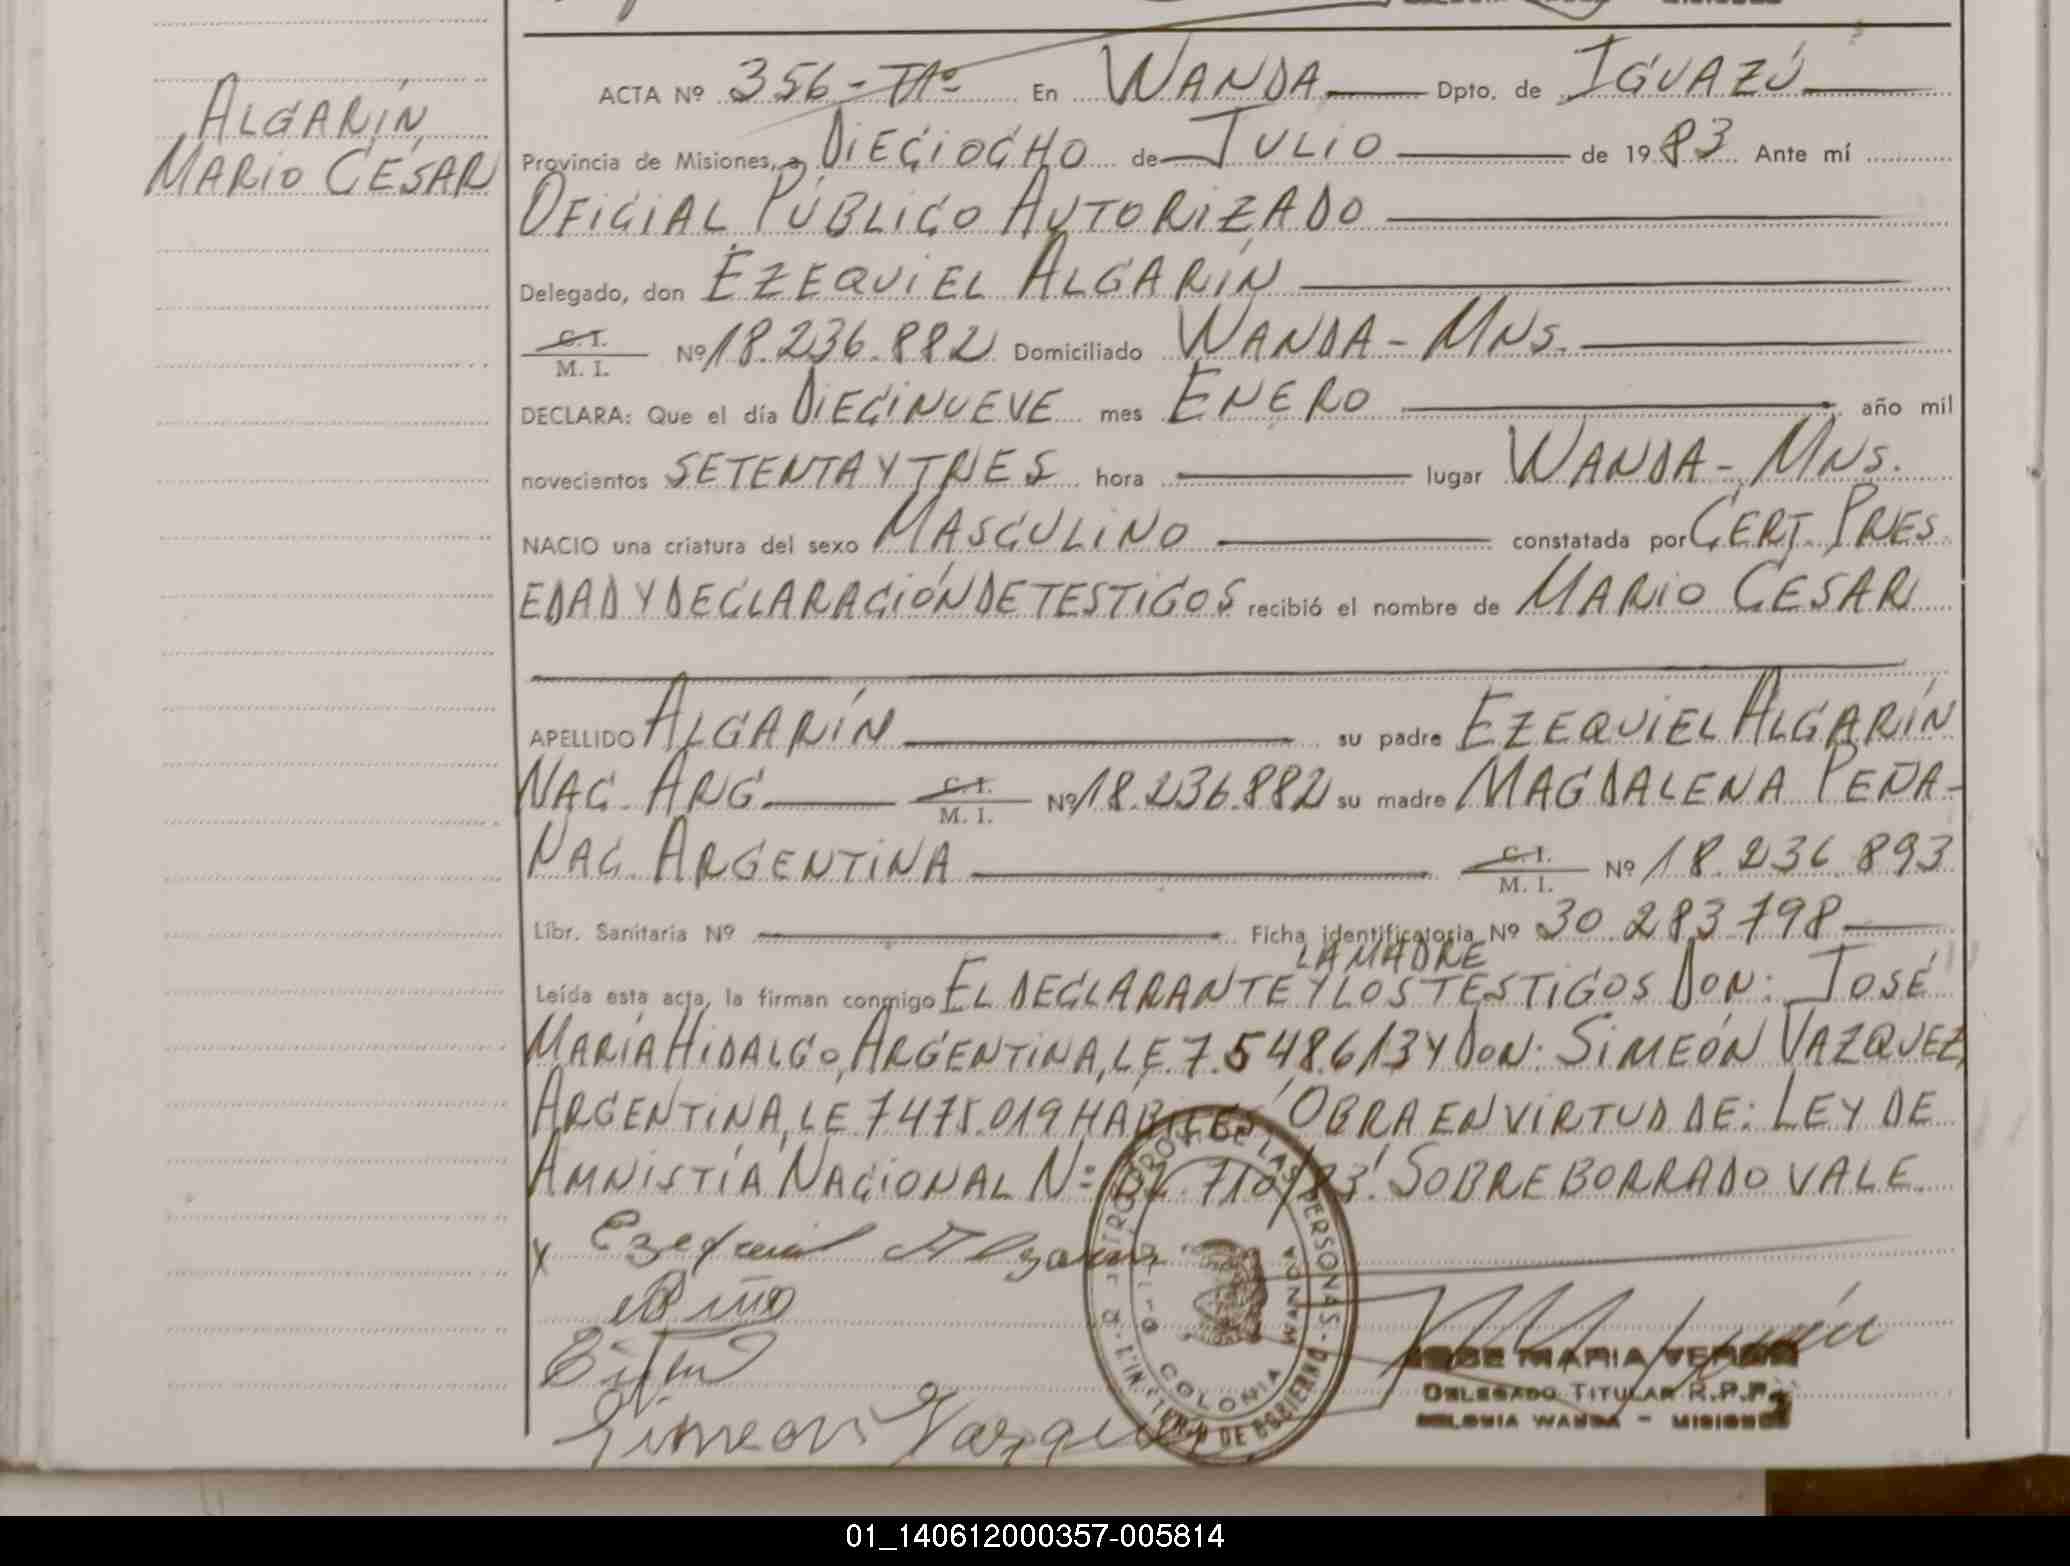 ALGARÍN
MARIO CÉSAR
ACTA Nº 356-TAº En WANDA Dpto. de IGUAZÚ
Provincia de Misiones, a DIECIOCHO de JULIO de 1983 Ante mí
OFICIAL PÚBLICO AUTORIZADO
Delegado, don EZEQUIEL ALGARÍN
C.I.
M. I. Nº 18.236.882 Domiciliado WANDA - MNS.
DECLARA: Que el día DIECINUEVE mes ENERO año mil
novecientos SETENTA Y TRES hora lugar WANDA - MNS.
NACIO una criatura del sexo MASCULINO constatada por CERT. PRES.
EDAD Y DECLARACIÓN DE TESTIGOS recibió el nombre de MARIO CESAR
APELLIDO ALGARÍN su padre EZEQUIEL ALGARÍN
NAC. ARG. C.I. M. I. Nº 18.236.882 su madre MAGDALENA PEÑA-
NAC. ARGENTINA C.I. M. I. Nº 18.236.893
Libr. Sanitaria Nº Ficha identificatoria Nº 30 283 798
LA MADRE
Leída esta acta, la firman conmigo EL DECLARANTE Y LOS TESTIGOS DON: JOSÉ
MARÍA HIDALGO, ARGENTINA, L.E. 7.548.613 Y DON: SIMEÓN VAZQUEZ,
ARGENTINA, L.E 7475.019 HABILES, OBRA EN VIRTUD DE: LEY DE
AMNISTÍA NACIONAL Nº: 22.710/83! SOBREBORRADO VALE.
x Ezequiel Algarin
Simeon Vazquez
DE LAS PERSONAS
WANDA
COLONIA
DE GOBIERNO
JOSE MARIA
DELEGADO TITULAR R.P.P.
COLONIA WANDA - MISIONES
01_140612000357-005814